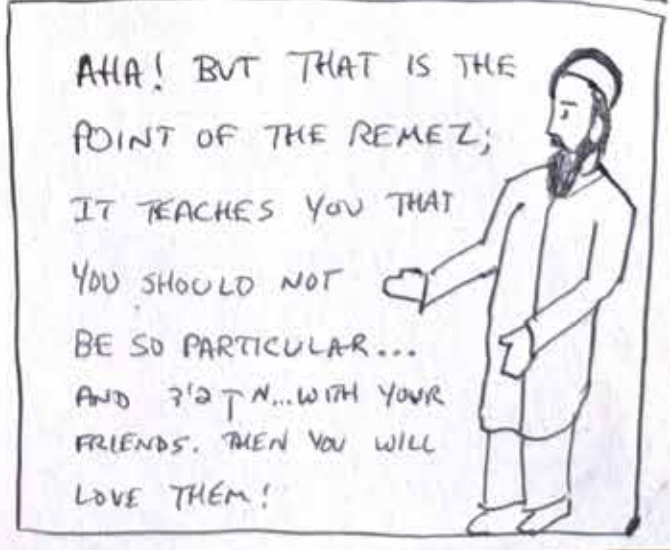 AHA! BUT THAT IS THE
POINT OF THE REMEZ;
IT TEACHES YOU THAT
YOU SHOULD NOT
BE SO PARTICULAR...
AND מקפיד...WITH YOUR
FRIENDS. THEN YOU WILL
LOVE THEM!